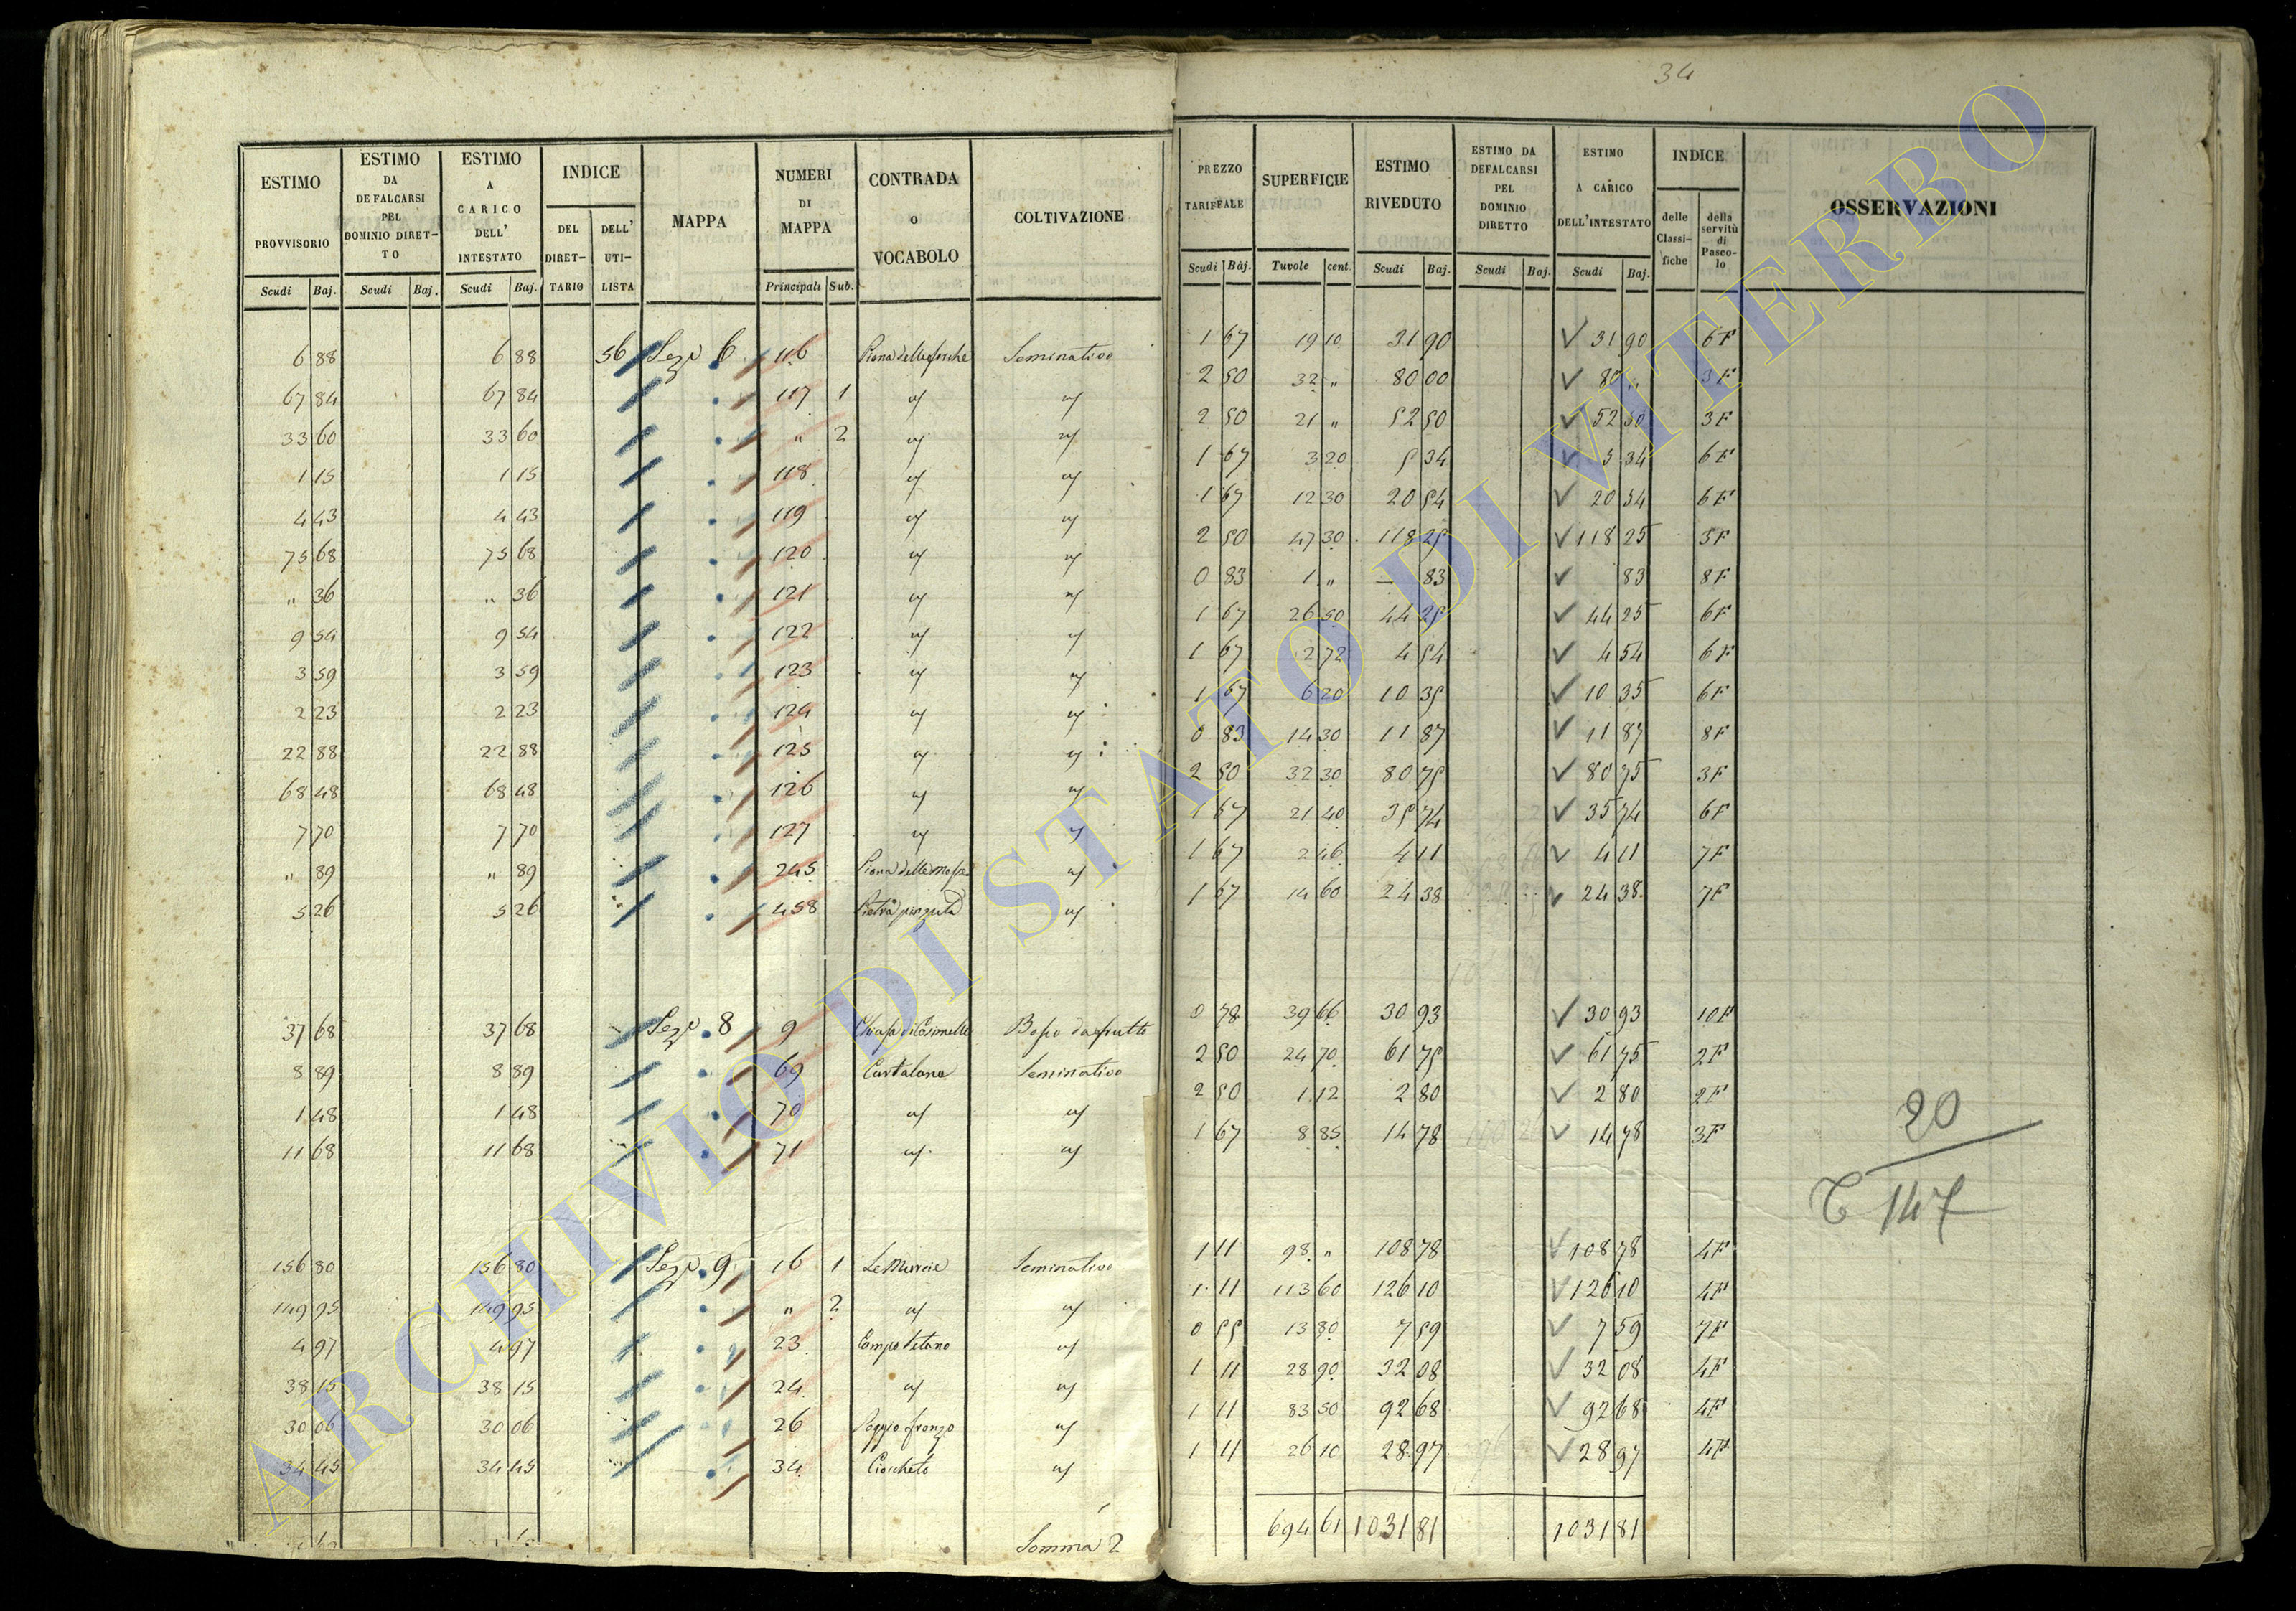 34
ESTIMO PROVVISORIO | ESTIMO DA DEFALCARSI PEL DOMINIO DIRETTO | ESTIMO A CARICO DELL' INTESTATO | INDICE DEL DIRETTARIO | DELL' UTILISTA | MAPPA | NUMERI DI MAPPA | CONTRADA o VOCABOLO | COLTIVAZIONE | PREZZO TARIFFALE | SUPERFICIE | ESTIMO RIVEDUTO | ESTIMO DA DEFALCARSI PEL DOMINIO DIRETTO | ESTIMO A CARICO DELL'INTESTATO | INDICE delle Classifiche | della servitù di Pascolo | OSSERVAZIONI
Scudi | Baj. | Scudi | Baj. | Scudi | Baj. | Principali | Sub. | Scudi | Baj. | Tavole | cent. | Scudi | Baj. | Scudi | Baj. | Scudi | Baj.
6 88 | 6 88 | 56 | Seze 6 | 116 | Piana delle forche | Seminativo | 1 67 | 19 10 | 31 90 | √ 31 90 | 6 F
67 84 | 67 84 | 117 | 1 | " | " | 2 50 | 32 " | 80 00 | √ 80 " | 3 F
33 60 | 33 60 | " | 2 | " | " | 2 50 | 21 " | 52 50 | √ 52 50 | 3 F
1 15 | 1 15 | 118 | " | " | 1 67 | 3 20 | 5 34 | √ 5 34 | 6 F
4 43 | 4 43 | 119 | " | " | 1 67 | 12 30 | 20 54 | √ 20 54 | 6 F
75 68 | 75 68 | 120 | " | " | 2 50 | 47 30 | 118 25 | √ 118 25 | 3 F
" 36 | " 36 | 121 | " | " | 0 83 | 1 " | — 83 | √ 83 | 8 F
9 54 | 9 54 | 122 | " | " | 1 67 | 26 50 | 44 25 | √ 44 25 | 6 F
3 59 | 3 59 | 123 | " | " | 1 67 | 2 72 | 4 54 | √ 4 54 | 6 F
2 23 | 2 23 | 124 | " | " | 1 67 | 6 20 | 10 35 | √ 10 35 | 6 F
22 88 | 22 88 | 125 | " | " | 0 83 | 14 30 | 11 87 | √ 11 87 | 8 F
68 48 | 68 48 | 126 | " | " | 2 50 | 32 30 | 80 75 | √ 80 75 | 3 F
7 70 | 7 70 | 127 | " | " | 1 67 | 21 40 | 35 74 | √ 35 74 | 6 F
" 89 | " 89 | 245 | Piana delle | " | 1 67 | 2 46 | 4 11 | √ 4 11 | 7 F
5 26 | 5 26 | 458 | Pietra pinzuta | " | 1 67 | 14 60 | 24 38 | √ 24 38 | 7 F
37 68 | 37 68 | Seze 8 | 9 | Bosco da frutto | 0 78 | 39 66 | 30 93 | √ 30 93 | 10 F
8 89 | 8 89 | 69 | Cartalana | Seminativo | 2 50 | 24 70 | 61 75 | √ 61 75 | 2 F
1 48 | 1 48 | 70 | " | " | 2 50 | 1 12 | 2 80 | √ 2 80 | 2 F
11 68 | 11 68 | 71 | " | " | 1 67 | 8 85 | 14 78 | √ 14 78 | 3 F
20
C 147
156 80 | 156 80 | Seze 9 | 16 | 1 | Le Murcie | Seminativo | 1 11 | 98 " | 108 78 | √ 108 78 | 4 F
149 95 | 149 95 | " | 2 | " | " | 1 11 | 113 60 | 126 10 | √ 126 10 | 4 F
4 97 | 4 97 | 23 | Campo Vetano | " | 0 55 | 13 80 | 7 59 | √ 7 59 | 7 F
38 15 | 38 15 | 24 | " | " | 1 11 | 28 90 | 32 08 | √ 32 08 | 4 F
30 06 | 30 06 | 26 | Poggio fronzo | " | 1 11 | 83 50 | 92 68 | √ 92 68 | 4 F
34 45 | 34 45 | 34 | Ciocheto | " | 1 11 | 26 10 | 28 97 | √ 28 97 | 4 F
Somma 2 | 694 61 | 1031 81 | 1031 81
ARCHIVIO DI STATO DI VITERBO